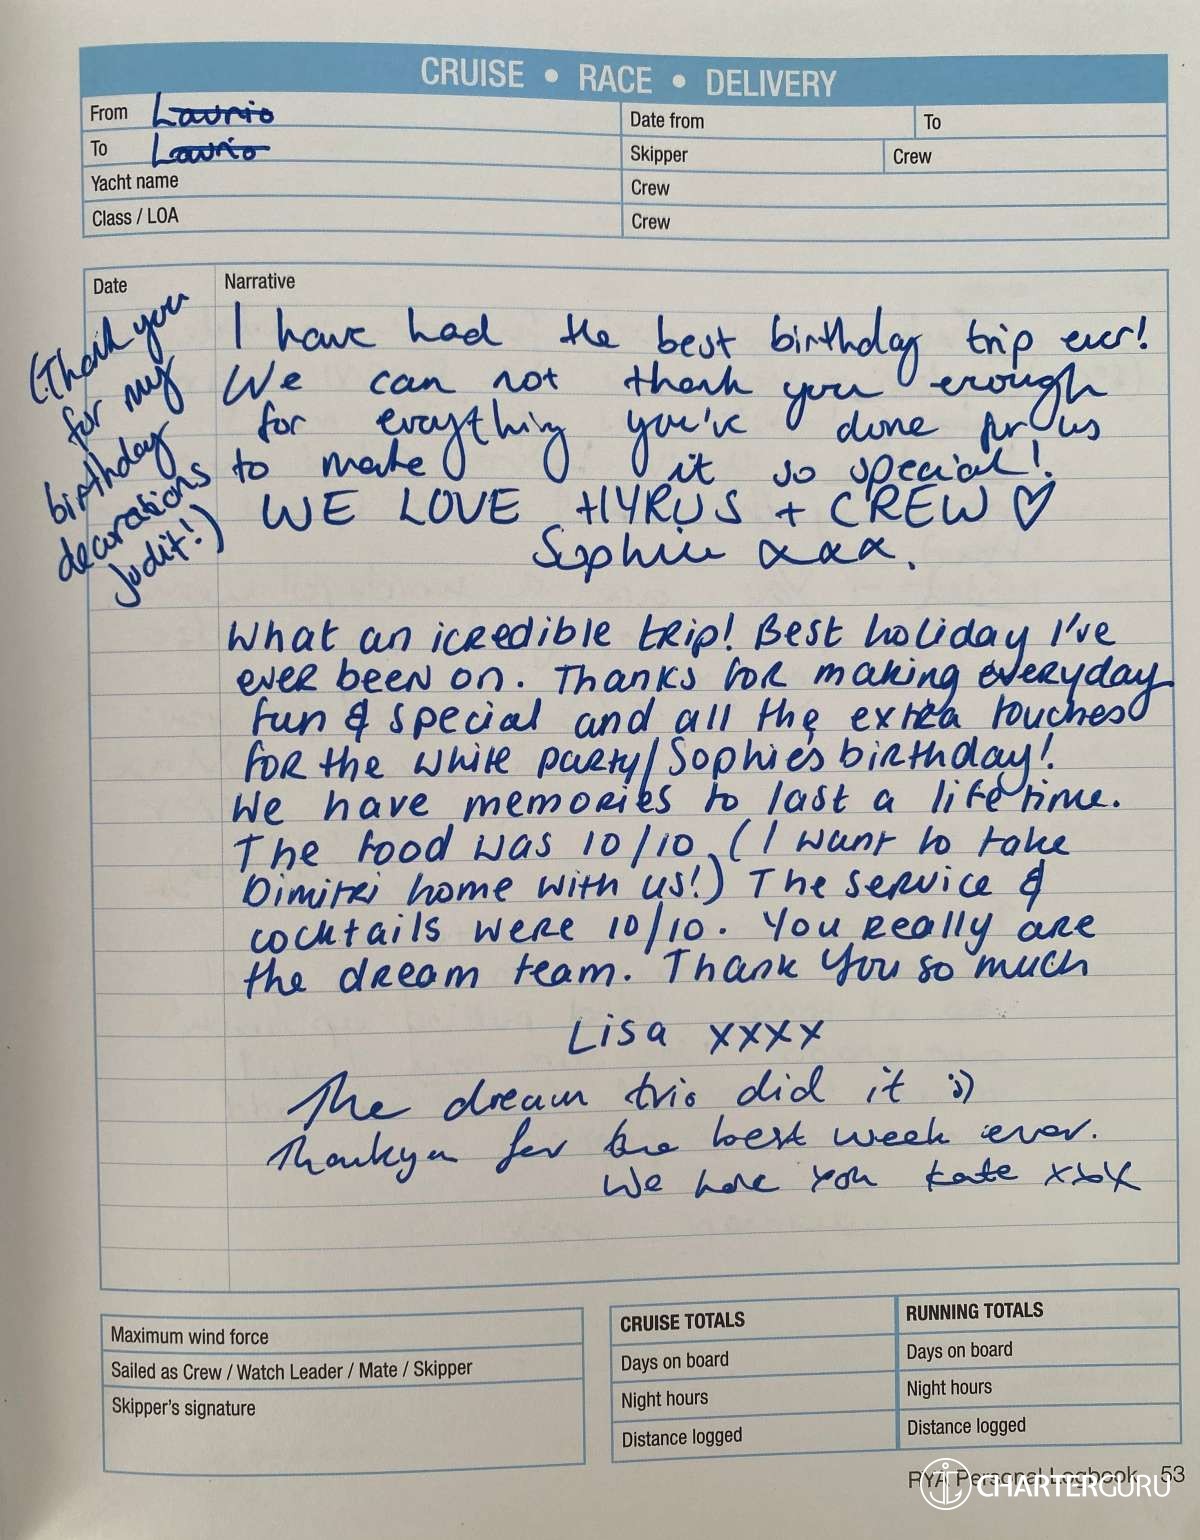 CRUISE • RACE • DELIVERY
From Lavrio
To Lavrio
Yacht name
Class / LOA
Date from
To
Skipper
Crew
Crew
Crew
Date
Narrative
(Thank you
for my
birthday
decorations
Judit!)
I have had the best birthday trip ever!
We can not thank you enough
for everything you've done for us
to make it so special!
WE LOVE HYRUS + CREW ♡
Sophie xxx.
What an icredible trip! Best holiday I've
ever been on. Thanks for making everyday
fun & special and all the extra touches
for the white party/Sophie's birthday!
We have memories to last a life time.
The food was 10/10 (I want to take
Dimitri home with us!) The service &
cocktails were 10/10. You really are
the dream team. Thank you so much
Lisa xxxx
The dream trio did it :)
Thankyou for the best week ever.
We love you Kate xxxx
Maximum wind force
Sailed as Crew / Watch Leader / Mate / Skipper
Skipper's signature
CRUISE TOTALS
Days on board
Night hours
Distance logged
RUNNING TOTALS
Days on board
Night hours
Distance logged
RYA Personal Logbook 53
CHARTERGURU